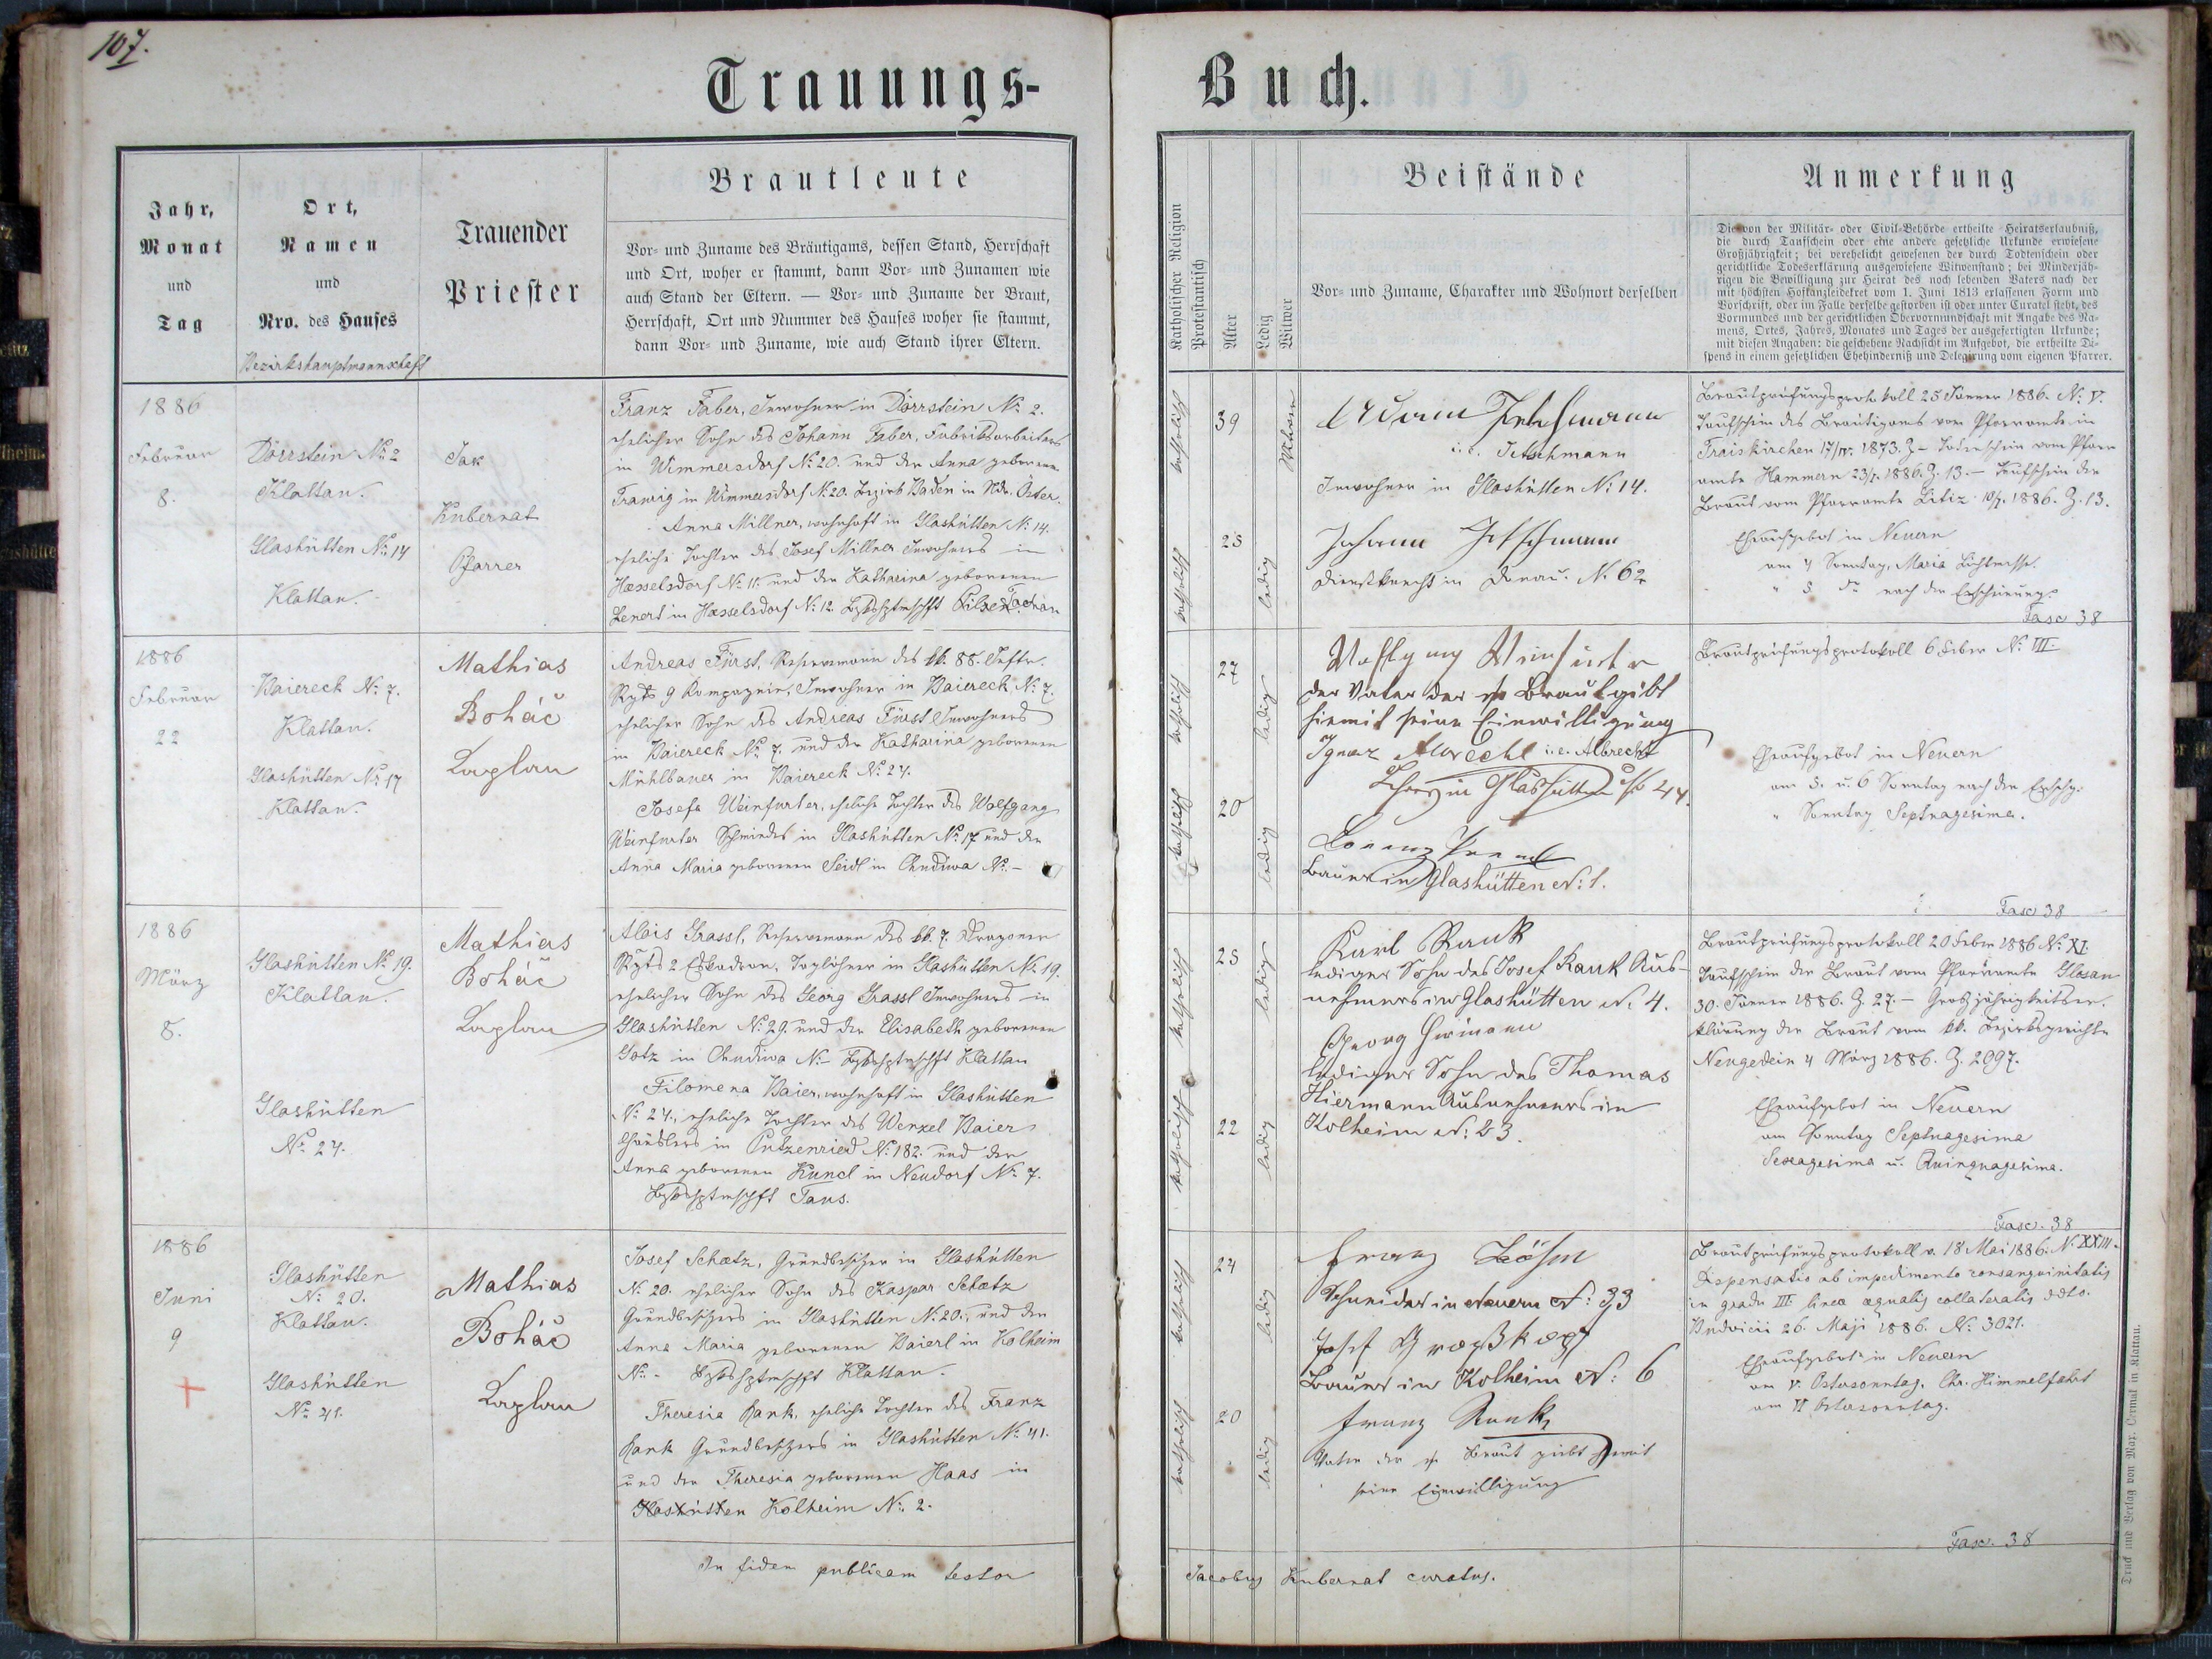 107.
Trauungs-
Buch.
Jahr,
Monat
und
Tag
Ort,
Namen
und
Nro. des Hauses
Bezirkshauptmannschaft
Trauender
Priester
Brautleute
Vor- und Zuname des Bräutigams, dessen Stand, Herrschaft
und Ort, woher er stammt, dann Vor- und Zunamen wie
auch Stand der Eltern. — Vor- und Zuname der Braut,
Herrschaft, Ort und Nummer des Hauses woher sie stammt,
dann Vor- und Zuname, wie auch Stand ihrer Eltern.
Katholischer Religion
Protestantisch
Alter
Ledig
Witwer
Beistände
Vor- und Zuname, Charakter und Wohnort derselben
Anmerkung
Die von der Militär- oder Civil-Behörde ertheilte Heiratserlaubniß,
die durch Taufschein oder eine andere gesetzliche Urkunde erwiesene
Großjährigkeit; bei verehelicht gewesenen der durch Todtenschein oder
gerichtliche Todeserklärung ausgewiesene Witwenstand; bei Minderjäh-
rigen die Bewilligung zur Heirat des noch lebenden Vaters nach der
mit höchsten Hofkanzleidekret vom 1. Juni 1813 erlassenen Form und
Vorschrift, oder im Falle derselbe gestorben ist oder unter Curatel steht, des
Vormundes und der gerichtlichen Obervormundschaft mit Angabe des Na-
mens, Ortes, Jahres, Monates und Tages der ausgefertigten Urkunde;
mit diesen Angaben: die geschehene Nachsicht im Aufgebot, die ertheilte Di-
spens in einem gesetzlichen Ehehinderniß und Delegirung vom eigenen Pfarrer.
1886
Februar
8.
Dörrstein No 2
Klattau.
Glashütten No 14
Klattau.
Jak
Kubernat
Pfarrer
Franz Faber, Inwohner in Dörrstein No 2.
ehelicher Sohn des Johann Faber, Fabriksarbeiters
in Wimmersdorf No 20. und der Anna geborenen
in Wimmersdorf No 20. Bezirk Baden in Ndr. Öster.
Anna Millner, wohnhaft in Glashütten No 14.
eheliche Tochter des Josef Millner Inwohners in
Hasselsdorf No 11. und der Katharina geborenen
Lenert in Hasselsdorf No 12. Tachau
katholisch
39
katholisch
25
ledig
i. e. Jetschmann
Inwohner in Glashütten No 14.
Johann Jetschmann
Dienstknecht in Donau. No 62
Brautprüfungsprotokoll 25 Jänner 1886. No V.
Taufschein des Bräutigams vom Pfarramte in
Traiskirchen 17/IV. 1873. Z - Todtenschein vom Pfarr
amte Hammern 23/1. 1886. Z. 13. — Taufschein der
Braut vom Pfarramte Litiz 10/1. 1886. Z. 13.
Eheaufgebot in Neuern
am 4 Sonntag, Maria Lichtmesse.
" 5 do nach der Erscheinung.
Fasc 38
1886
Februar
22
Baiereck No 7.
Klattau.
Glashütten No 17
Klattau.
Mathias
Boháč
Kaplan
Andreas Fürst, Reservemann des kk. 88. Inftr.
Rgts 9 Kompagnie, Inwohner in Baiereck No 7.
ehelicher Sohn des Andreas Fürst Inwohners
in Baiereck No 7. und der Katharina geborenen
Mühlbauer in Baiereck No 24.
Josefa Weinfurter, eheliche Tochter des Wolfgang
Weinfurter Schmiedes in Glashütten No 17 und der
Anna Maria geborenen Seidl in Chudiwa No -
katholisch
27
ledig
katholisch
20
ledig
Wolfgang Weinfurter
der Vater der Braut gibt
hiemit seine Einwilligung
Ignaz Albrecht i. e. Albrecht
in Glashütten No 44.
Bauer in Glashütten N: 1.
Brautprüfungsprotokoll 6 Feber No VIII.
Eheaufgebot in Neuern
am 5. u. 6 Sonntag nach der Erschg.
" Sonntag Septuagesima.
Fasc 38
1886
März
8.
Glashütten No 19.
Klattau.
Glashütten
No 24.
Mathias
Boháč
Kaplan
Alois Grassl, Reservemann des kk. 7. Dragoner
Rgts 2 Eskadron, Taglöhner in Glashütten No 19.
ehelicher Sohn des Georg Grassl Inwohners in
Glashütten No 29. und der Elisabeth geborenen
Götz in Chudiwa No - Bzkshptmschft Klattau
Filomena Baier, wohnhaft in Glashütten
No 24., eheliche Tochter des Wenzel Baier
Häuslers in Putzenried No 182. und der
Anna geborenen Kuncl in Neudorf No 7.
Bzkshptmschft Taus.
katholisch
25
ledig
katholisch
22
ledig
Karl Rank
lediger Sohn des Josef Rank Aus-
nehmers in Glashütten N. 4.
Georg Hirmann
lediger Sohn des Thomas
Hiermann Ausnehmers in
Kolheim N: 23.
Brautprüfungsprotokoll 20 Feber 1886 No XI.
Taufschein der Braut vom Pfarramte Glosau
30. Jänner 1886. Z. 27. — Großjährigkeitser-
klärung der Braut vom kk. Bezirksgerichte
Neugedein 4 März 1886. Z. 2097.
Eheaufgebot in Neuern
am Sonntag Septuagesima
Sexagesima u. Quinquagesima.
Fasc. 38
1886
Juni
9
Glashütten
No 20.
Klattau.
Glashütten
No 41.
Mathias
Boháč
Kaplan
Josef Schatz, Grundbesitzer in Glashütten
No 20. ehelicher Sohn des Kaspar Schatz
Grundbesitzers in Glashütten No 20., und der
Anna Maria geborenen Baierl in Kolheim
No - Bzkshptmschft Klattau.
Theresia Rank, eheliche Tochter des Franz
Rank Grundbesitzers in Glashütten No 41.
und der Theresia geborenen Haas in
Glashütten Kolheim No 2.
katholisch
24
ledig
katholisch
20
ledig
Franz Böhm
Schneider in Neuern N: 33
Josef Großkopf
Bauer in Kolheim N: 6
Franz Rank,
Vater der Braut gibt hiemit
seine Einwilligung
Brautprüfungsprotokoll v. 18 Mai 1886. No XXIII.
Dispensatio ab impedimento consanguinitatis
in gradu III. linea aequalis collateralis ddto.
Budvicii 26. Maji 1886. No 3021.
Eheaufgebot in Neuern
am V. Ostersonntag, Chr. Himmelfahrt
am VI Ostersonntag.
Fasc. 38
In fidem publicam testor
Jacobus Kubernat curatus.
Druck und Verlag von Max. Čermak in Klattau.